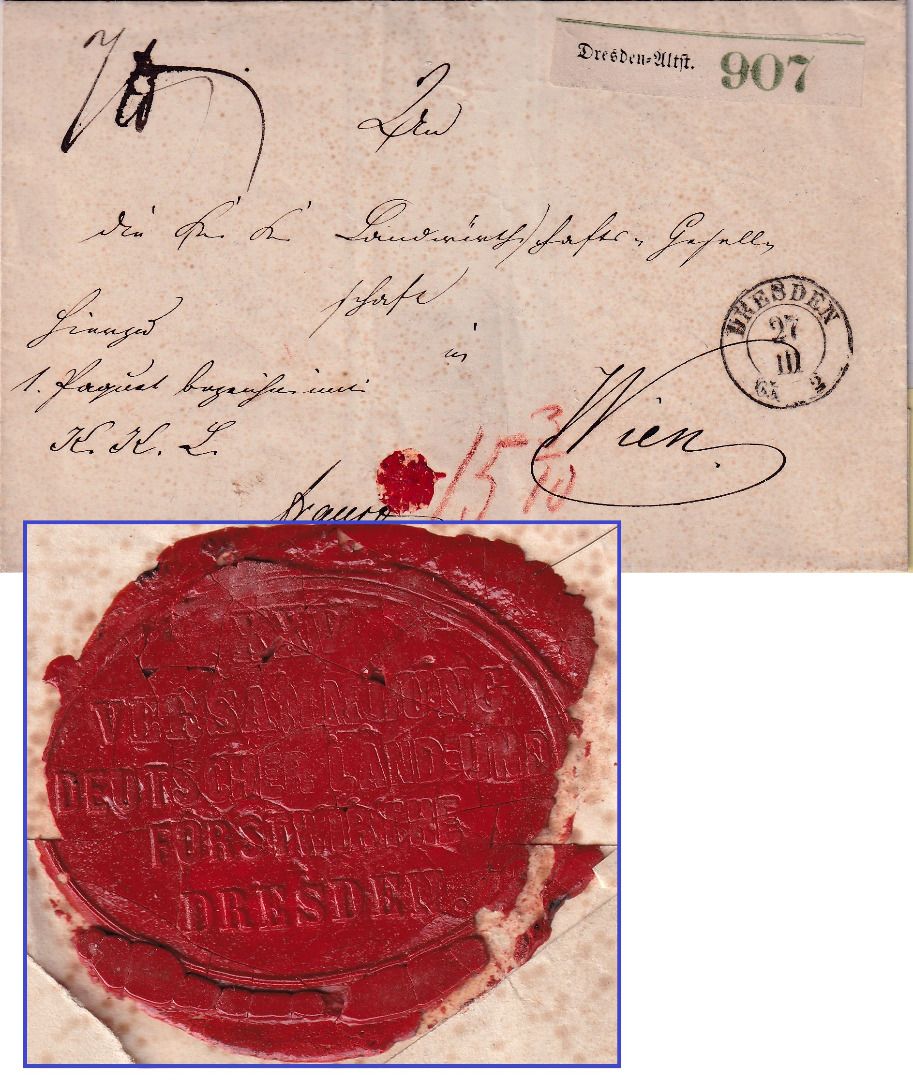 Dresden-Altst. 907
An
die K. K. Landwirthschafts-Gesell-
schaft
in
Wien.
Hierzu
1. Paquet bezeichnet
K. K. L.
franco
15 3/10
DRESDEN
27
III
65 2
XXIV
VERSAMMLUNG
DEUTSCHER LAND-UND
FORSTWIRTHE
DRESDEN.